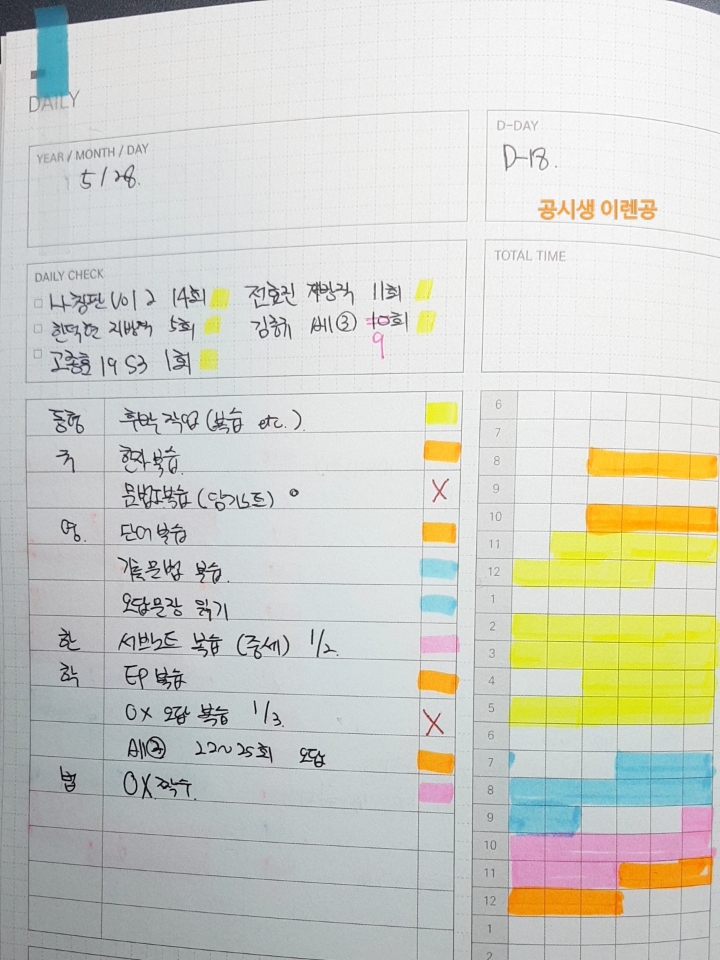 DAILY
YEAR / MONTH / DAY
5/28.
D-DAY
D-18.
공시생 이렌공
DAILY CHECK
나침판 Vol 2 14회 전효진 지방직 11회
한덕현 지방직 5회 김중규 세③ 10회
9
고종훈 19 S3 1회
TOTAL TIME
동형 후속작업 (복습 etc.)
국 한자복습
문법복습 (당기노트)
영. 단어복습
기출문법 복습.
오답문장 읽기
한 서브노트 복습 (중세) 1/2.
학 EP 복습
OX 오답 복습 1/3.
세③ 22~25회 오답
법 OX 짝수.
6
7
8
9
10
11
12
1
2
3
4
5
6
7
8
9
10
11
12
1
2